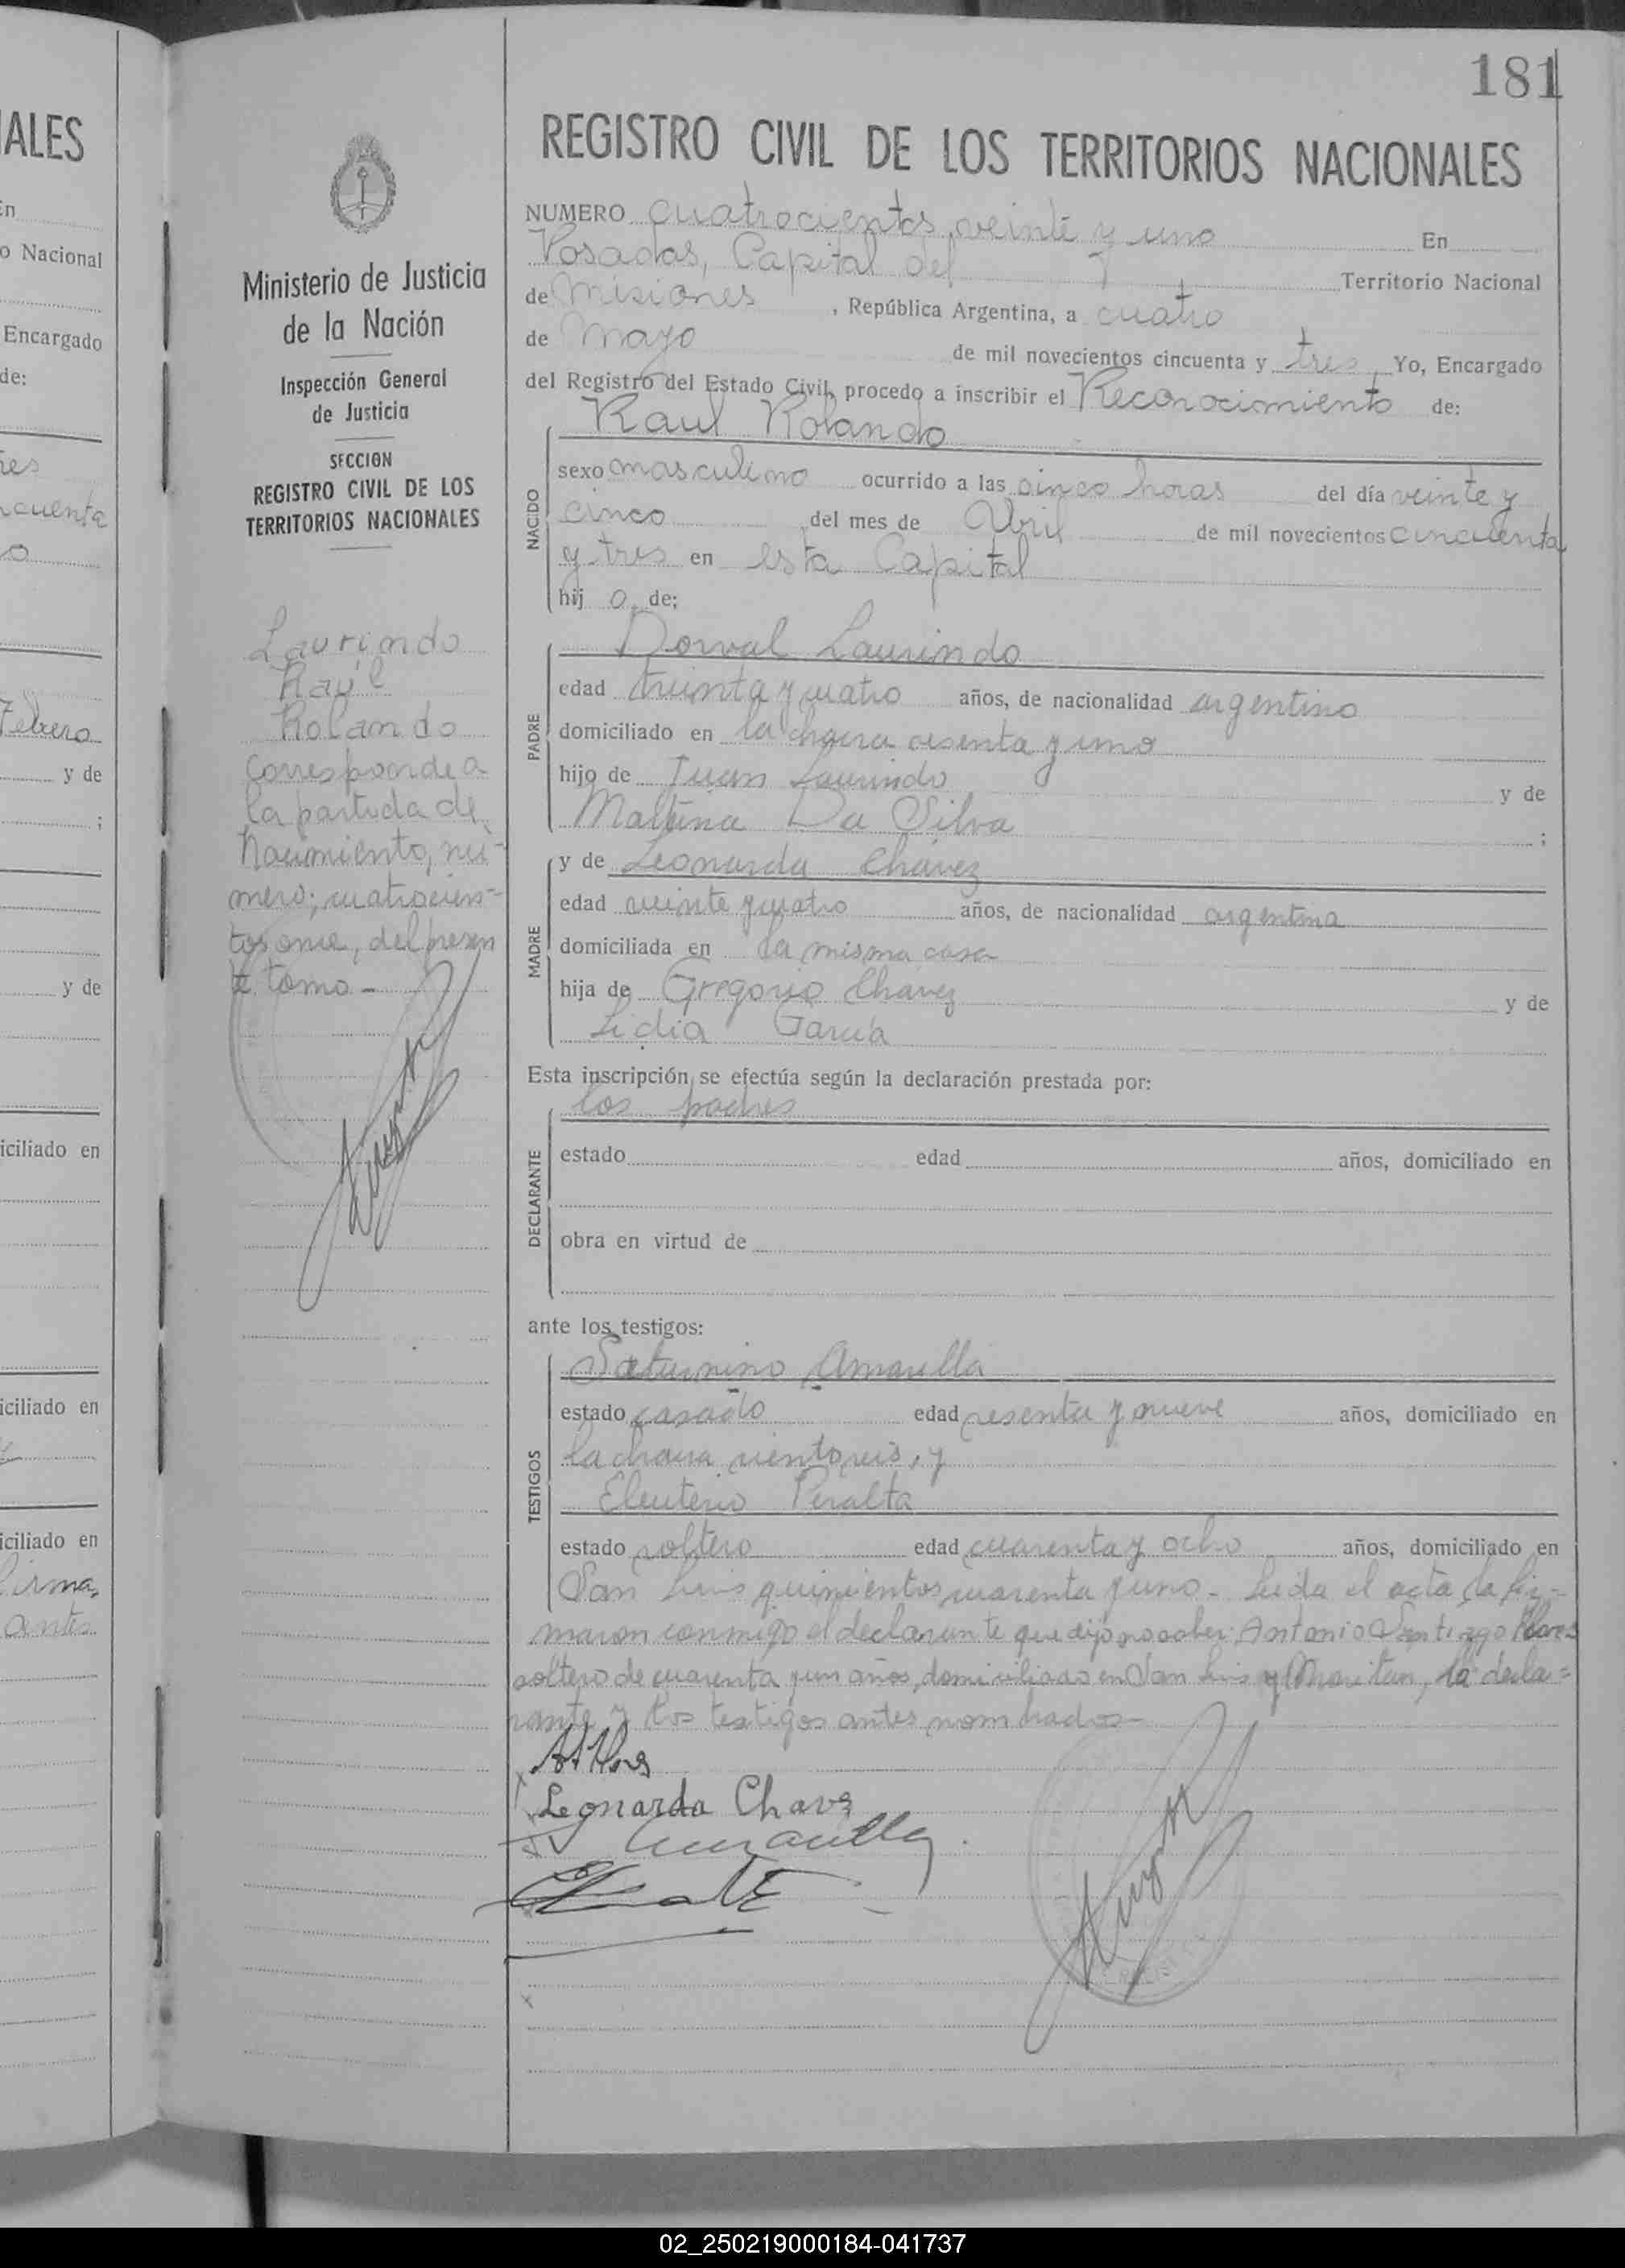 181
REGISTRO CIVIL DE LOS TERRITORIOS NACIONALES
NUMERO cuatrocientos veinte y uno En
Posadas, Capital del Territorio Nacional
de Misiones, República Argentina, a cuatro
de Mayo de mil novecientos cincuenta y tres, Yo, Encargado
del Registro del Estado Civil, procedo a inscribir el Reconocimiento de:
Raul Rolando
NACIDO
sexo masculino ocurrido a las cinco horas del día veinte y
cinco del mes de Abril de mil novecientos cincuenta
y tres en esta Capital
hij o de;
Dorval Laurindo
PADRE
edad treinta y cuatro años, de nacionalidad argentino
domiciliado en la chacra sesenta y uno
hijo de Juan Laurindo y de
Da Silva ;
y de Leonarda Chavez
MADRE
edad veinte y cuatro años, de nacionalidad argentina
domiciliada en la misma casa
hija de Gregorio Chavez y de
Lidia García
Esta inscripción se efectúa según la declaración prestada por:
los padres
DECLARANTE
estado edad años, domiciliado en
obra en virtud de
ante los testigos:
Saturnino Amarilla
TESTIGOS
estado casado edad sesenta y nueve años, domiciliado en
la chacra ciento seis, y
Eleuterio Peralta
estado soltero edad cuarenta y ocho años, domiciliado en
San Luis quinientos cuarenta y uno - Leida el acta la fir-
maron conmigo el declarante que dijo no saber, Antonio Santiago
soltero de cuarenta y un años, domiciliado en San Luis y, la decla=
rante y los testigos antes nombrados-
Leonarda Chavz
Ministerio de Justicia
de la Nación
Inspección General
de Justicia
SECCION
REGISTRO CIVIL DE LOS
TERRITORIOS NACIONALES
Laurindo
Raúl
Rolando
Corresponde a
la partida de
Nacimiento, nú-
mero; cuatrocien-
tos once, del presen
te tomo-
IALES
En
o Nacional
Encargado
de:
res
ncuenta
o
Febrero
y de
;
y de
iciliado en
iciliado en
iciliado en
firma,
antes
02_250219000184-041737